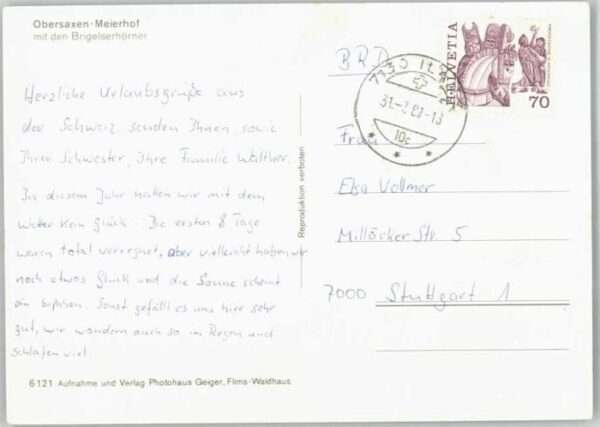 Obersaxen-Meierhof
mit den Brigelserhörner
Herzliche Urlaubsgrüße aus
der Schweiz senden Ihnen sowie
Ihrer Schwester, Ihre Familie Walther.
In diesem Jahr hatten wir mit dem
Wetter kein Glück. Die ersten 8 Tage
waren total verregnet, aber vielleicht haben wir
noch etwas Glück und die Sonne scheint
ein bißchen. Sonst gefällt es uns hier sehr
gut, wir wandern auch so im Regen und
schlafen viel.
6121 Aufnahme und Verlag Photohaus Geiger, Flims-Waldhaus
Reproduktion verboten
BRD
7130
HELVETIA
70
Frau
Elsa Vollmer
Millöcker Str. 5
7000 Stuttgart 1